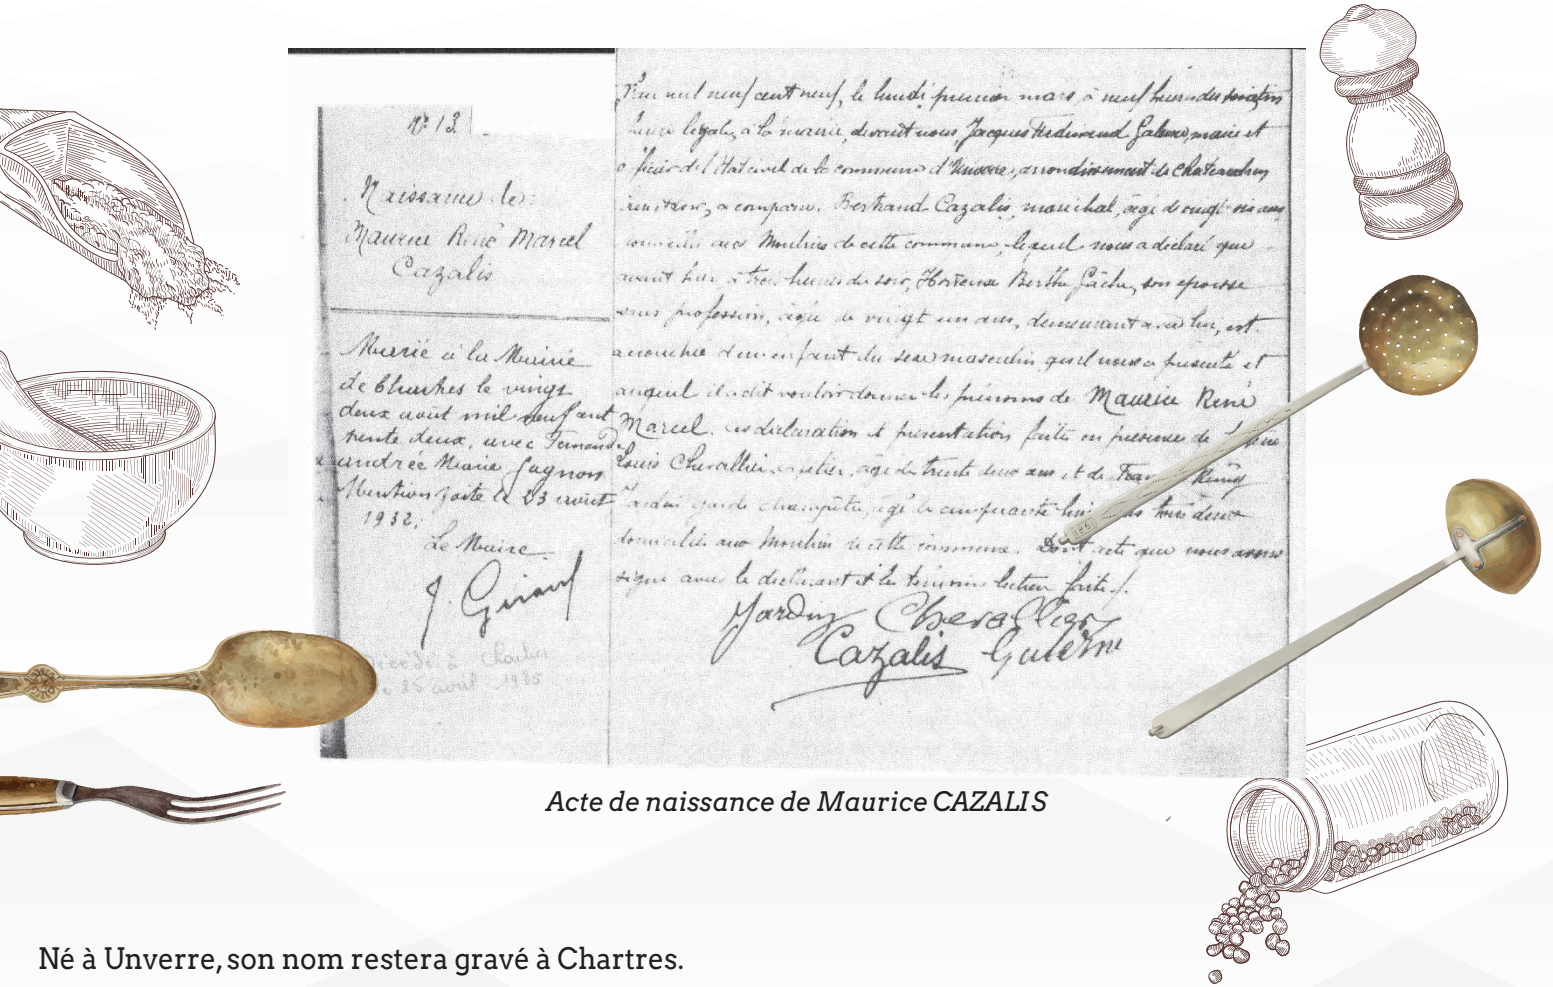 N° 13
Naissance de
Maurice René Marcel
Cazalis
Marié à la Mairie
de Chartres le vingt
deux août mil neuf cent
trente deux, avec Fernande
andrée Marie Gagnon
Mention faite le 23 août
1932.
Le Maire
J. Girard
Décédé à Chartres
le 25 avril 1985
L'an mil neuf cent neuf, le lundi premier mars, à neuf heures du matin
heure légale, à la mairie, devant nous, Jacques Ferdinand maire et
officier de l'Etat civil de la commune d'Unverre, arrondissement de Chateaudun
a comparu Bertrand Cazalis, maréchal, âgé de vingt-six ans
aux Moulins de cette commune, lequel nous a déclaré que
avant hier, à trois heures du soir, Hortense Berthe son épouse
sans profession, âgée de vingt un ans, demeurant avec lui, est
accouchée d'un enfant du sexe masculin, qu'il nous a présenté et
auquel il a dit vouloir donner les prénoms de Maurice René
Marcel. déclaration et présentation faites en présence de
Louis Chevallier, âgé de trente deux ans, et de Rémy
Jardin garde champêtre, âgé de cinquante tous deux
domiciliés aux Moulins de cette commune. Dont acte que nous avons
signé avec le déclarant et les témoins lecture faite.
Jardin Chevallier
Cazalis
Acte de naissance de Maurice CAZALIS
Né à Unverre, son nom restera gravé à Chartres.